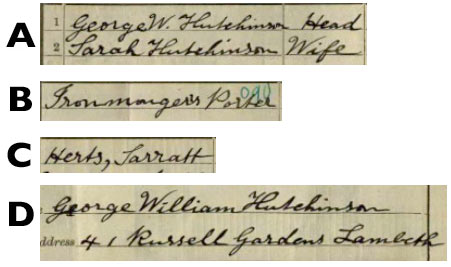 A
1 George W Hutchinson Head
2 Sarah Hutchinson Wife
B
Ironmongers Porter 090
C
Herts, Sarratt
D
George William Hutchinson
ddress 41 Russell Gardens Lambeth